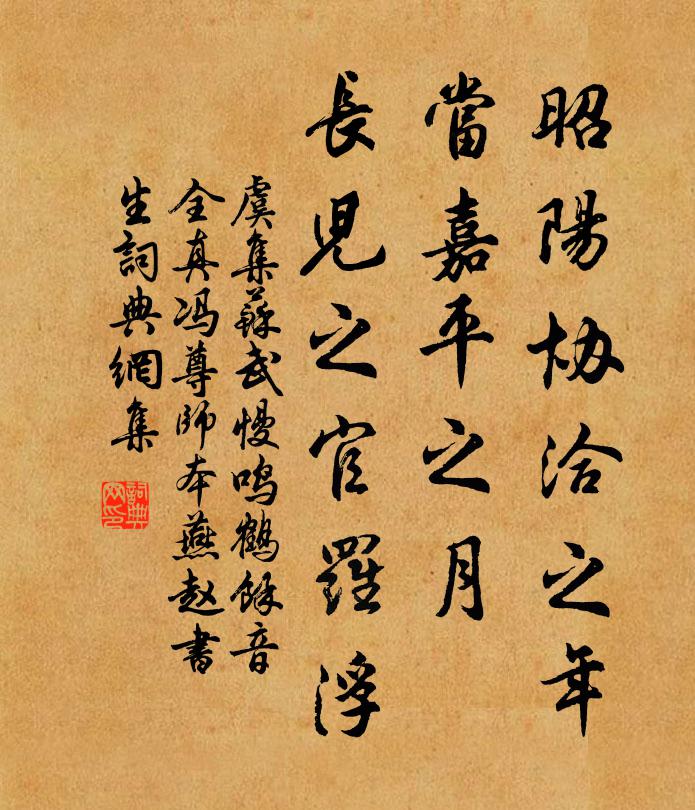 昭陽协洽之年
當嘉平之月
長児之官羅浮
虞集蘇武慢鳴鶴餘音
全真冯尊師本燕赵書
生詞典網集
詞典网印